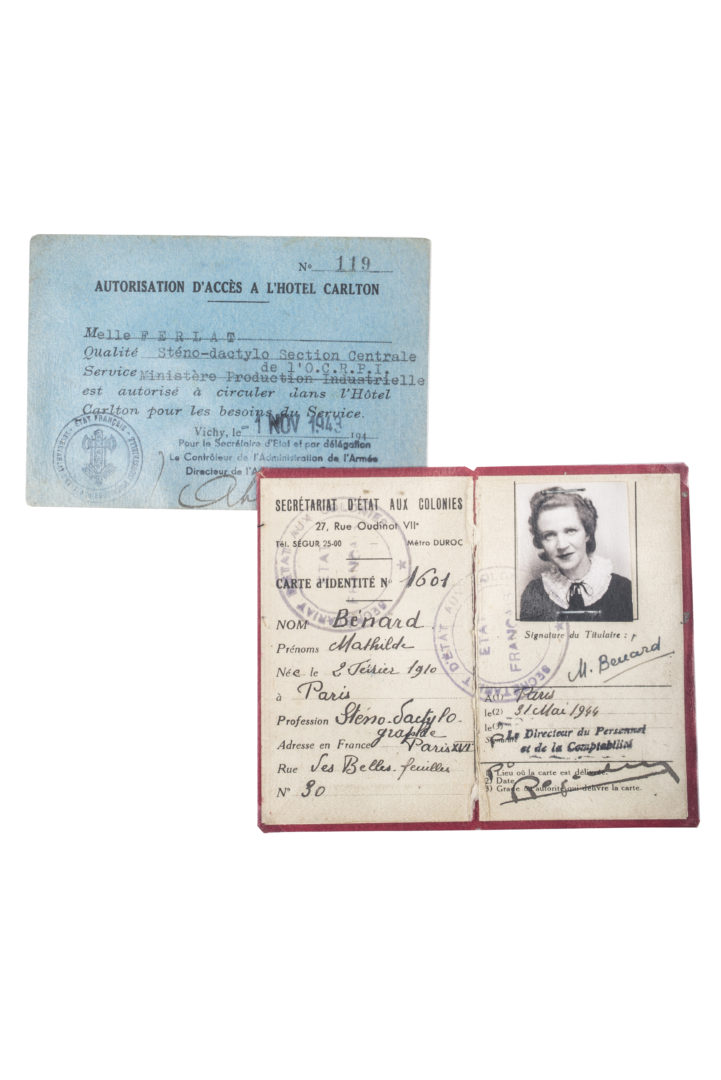 Nº 119
AUTORISATION D'ACCÈS A L'HOTEL CARLTON
Melle FERLAT
Qualité Sténo-dactylo Section Centrale
de l'O.C.R.P.I.
Service Ministère Production Industrielle
est autorisé à circuler dans l'Hôtel
Carlton pour les besoins du Service.
Vichy, le -1 NOV 1943 194
Pour le Secrétaire d'Etat et par délégation
Le Contrôleur de l'Administration de l'Armée
Directeur de l'A
ÉTAT FRANÇAIS
SECRÉTARIAT D'ÉTAT AUX COLONIES
27, Rue Oudinot VIIᵉ
Tél. SÉGUR 25-00 Métro DUROC
CARTE d'IDENTITÉ Nº 1601
NOM Bénard
Prénoms Mathilde
Née le 2 Février 1910
à Paris
Profession Sténo-dactylo-
graphe
Adresse en France Paris XVIᵉ
Rue des Belles-feuilles
Nº 30
SECRÉTARIAT D'ÉTAT AUX COLONIES
ÉTAT
FRANÇAIS
Signature du Titulaire :
M. Benard
A(1) Paris
le(2) 31 Mai 1944
le(3)
Le Directeur du Personnel
et de la Comptabilité
Lieu où la carte est délivrée.
2) Date
3) Grade ou autorité qui délivre la carte.
SECRÉTARIAT D'ÉTAT AUX COLONIES
ÉTAT
FRANÇAIS